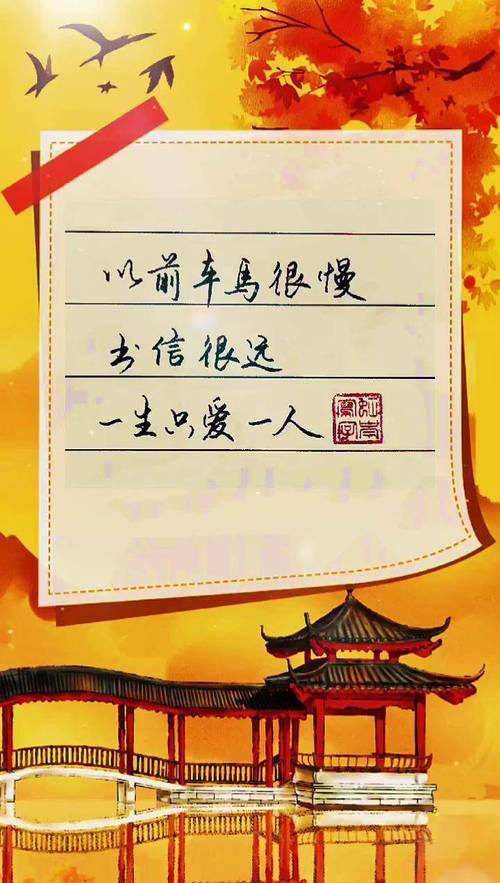 以前车馬很慢
书信很远
一生只爱一人